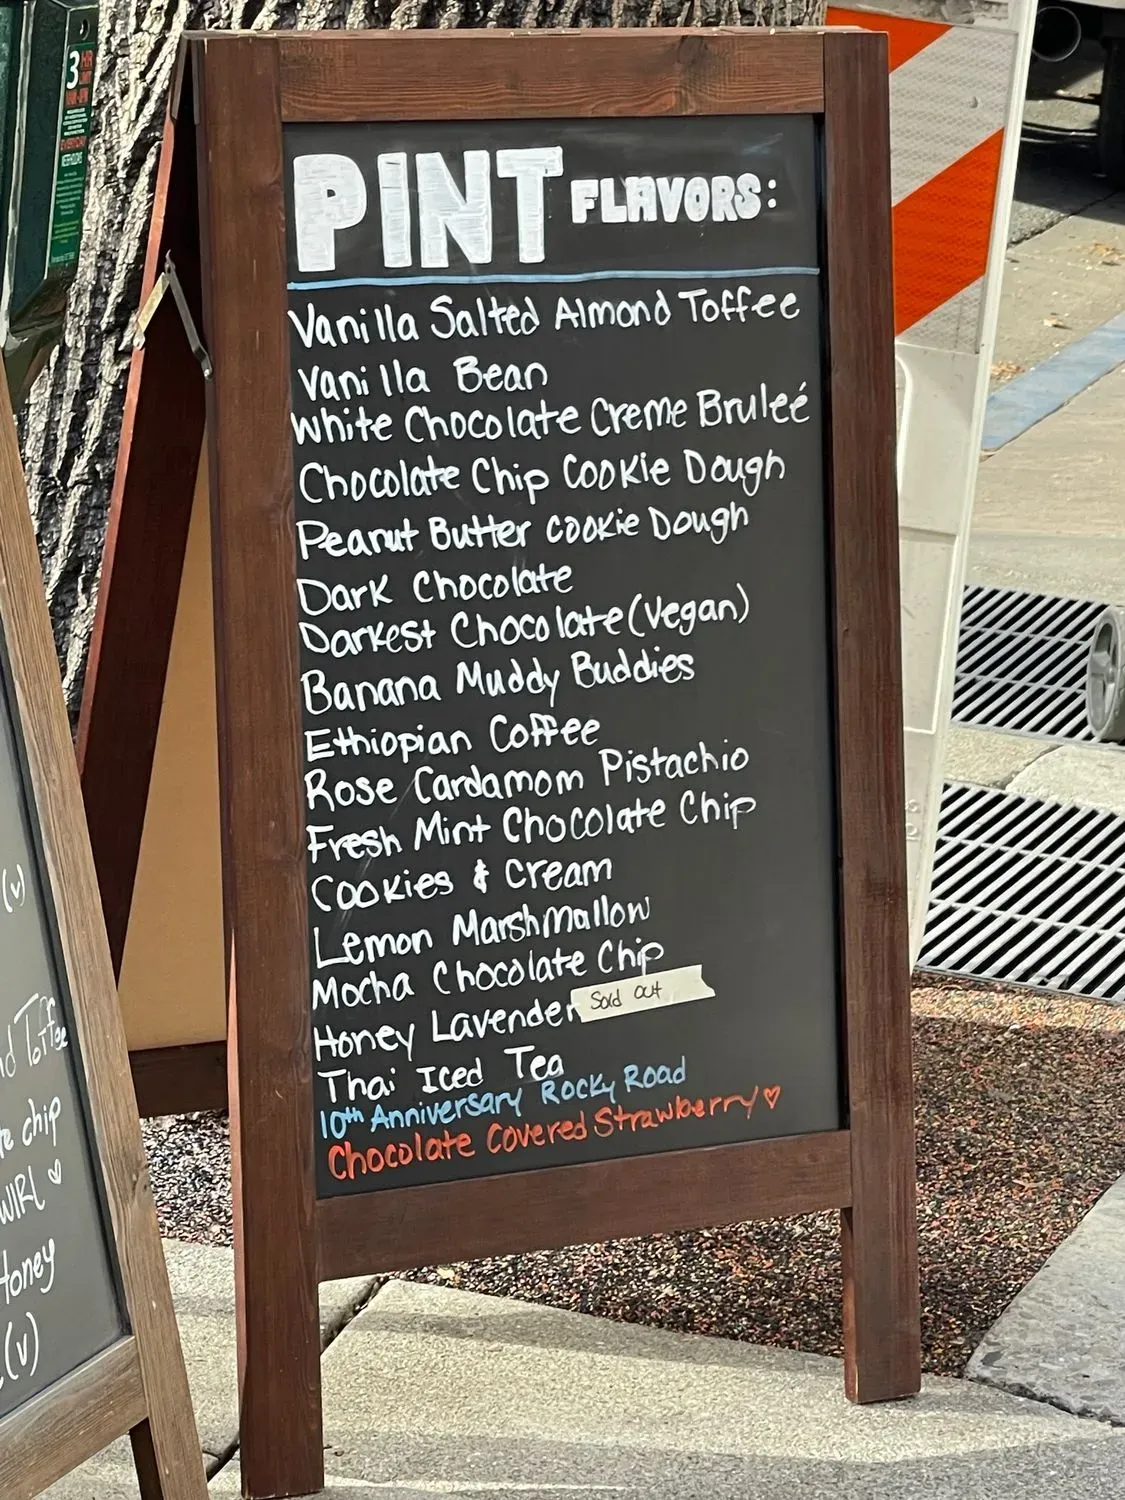 PINT FLAVORS:
Vanilla Salted Almond Toffee
Vanilla Bean
White Chocolate Creme Bruleé
Chocolate Chip Cookie Dough
Peanut Butter Cookie Dough
Dark Chocolate
Darkest Chocolate (Vegan)
Banana Muddy Buddies
Ethiopian Coffee
Rose Cardamom Pistachio
Fresh Mint Chocolate Chip
Cookies & Cream
Lemon Marshmallow
Mocha Chocolate Chip
Honey Lavender Sold out
Thai Iced Tea
10th Anniversary Rocky Road
Chocolate Covered Strawberry ♡
3 HR
EVERYDAY
(v)
Toffee
chip
Honey
(v)